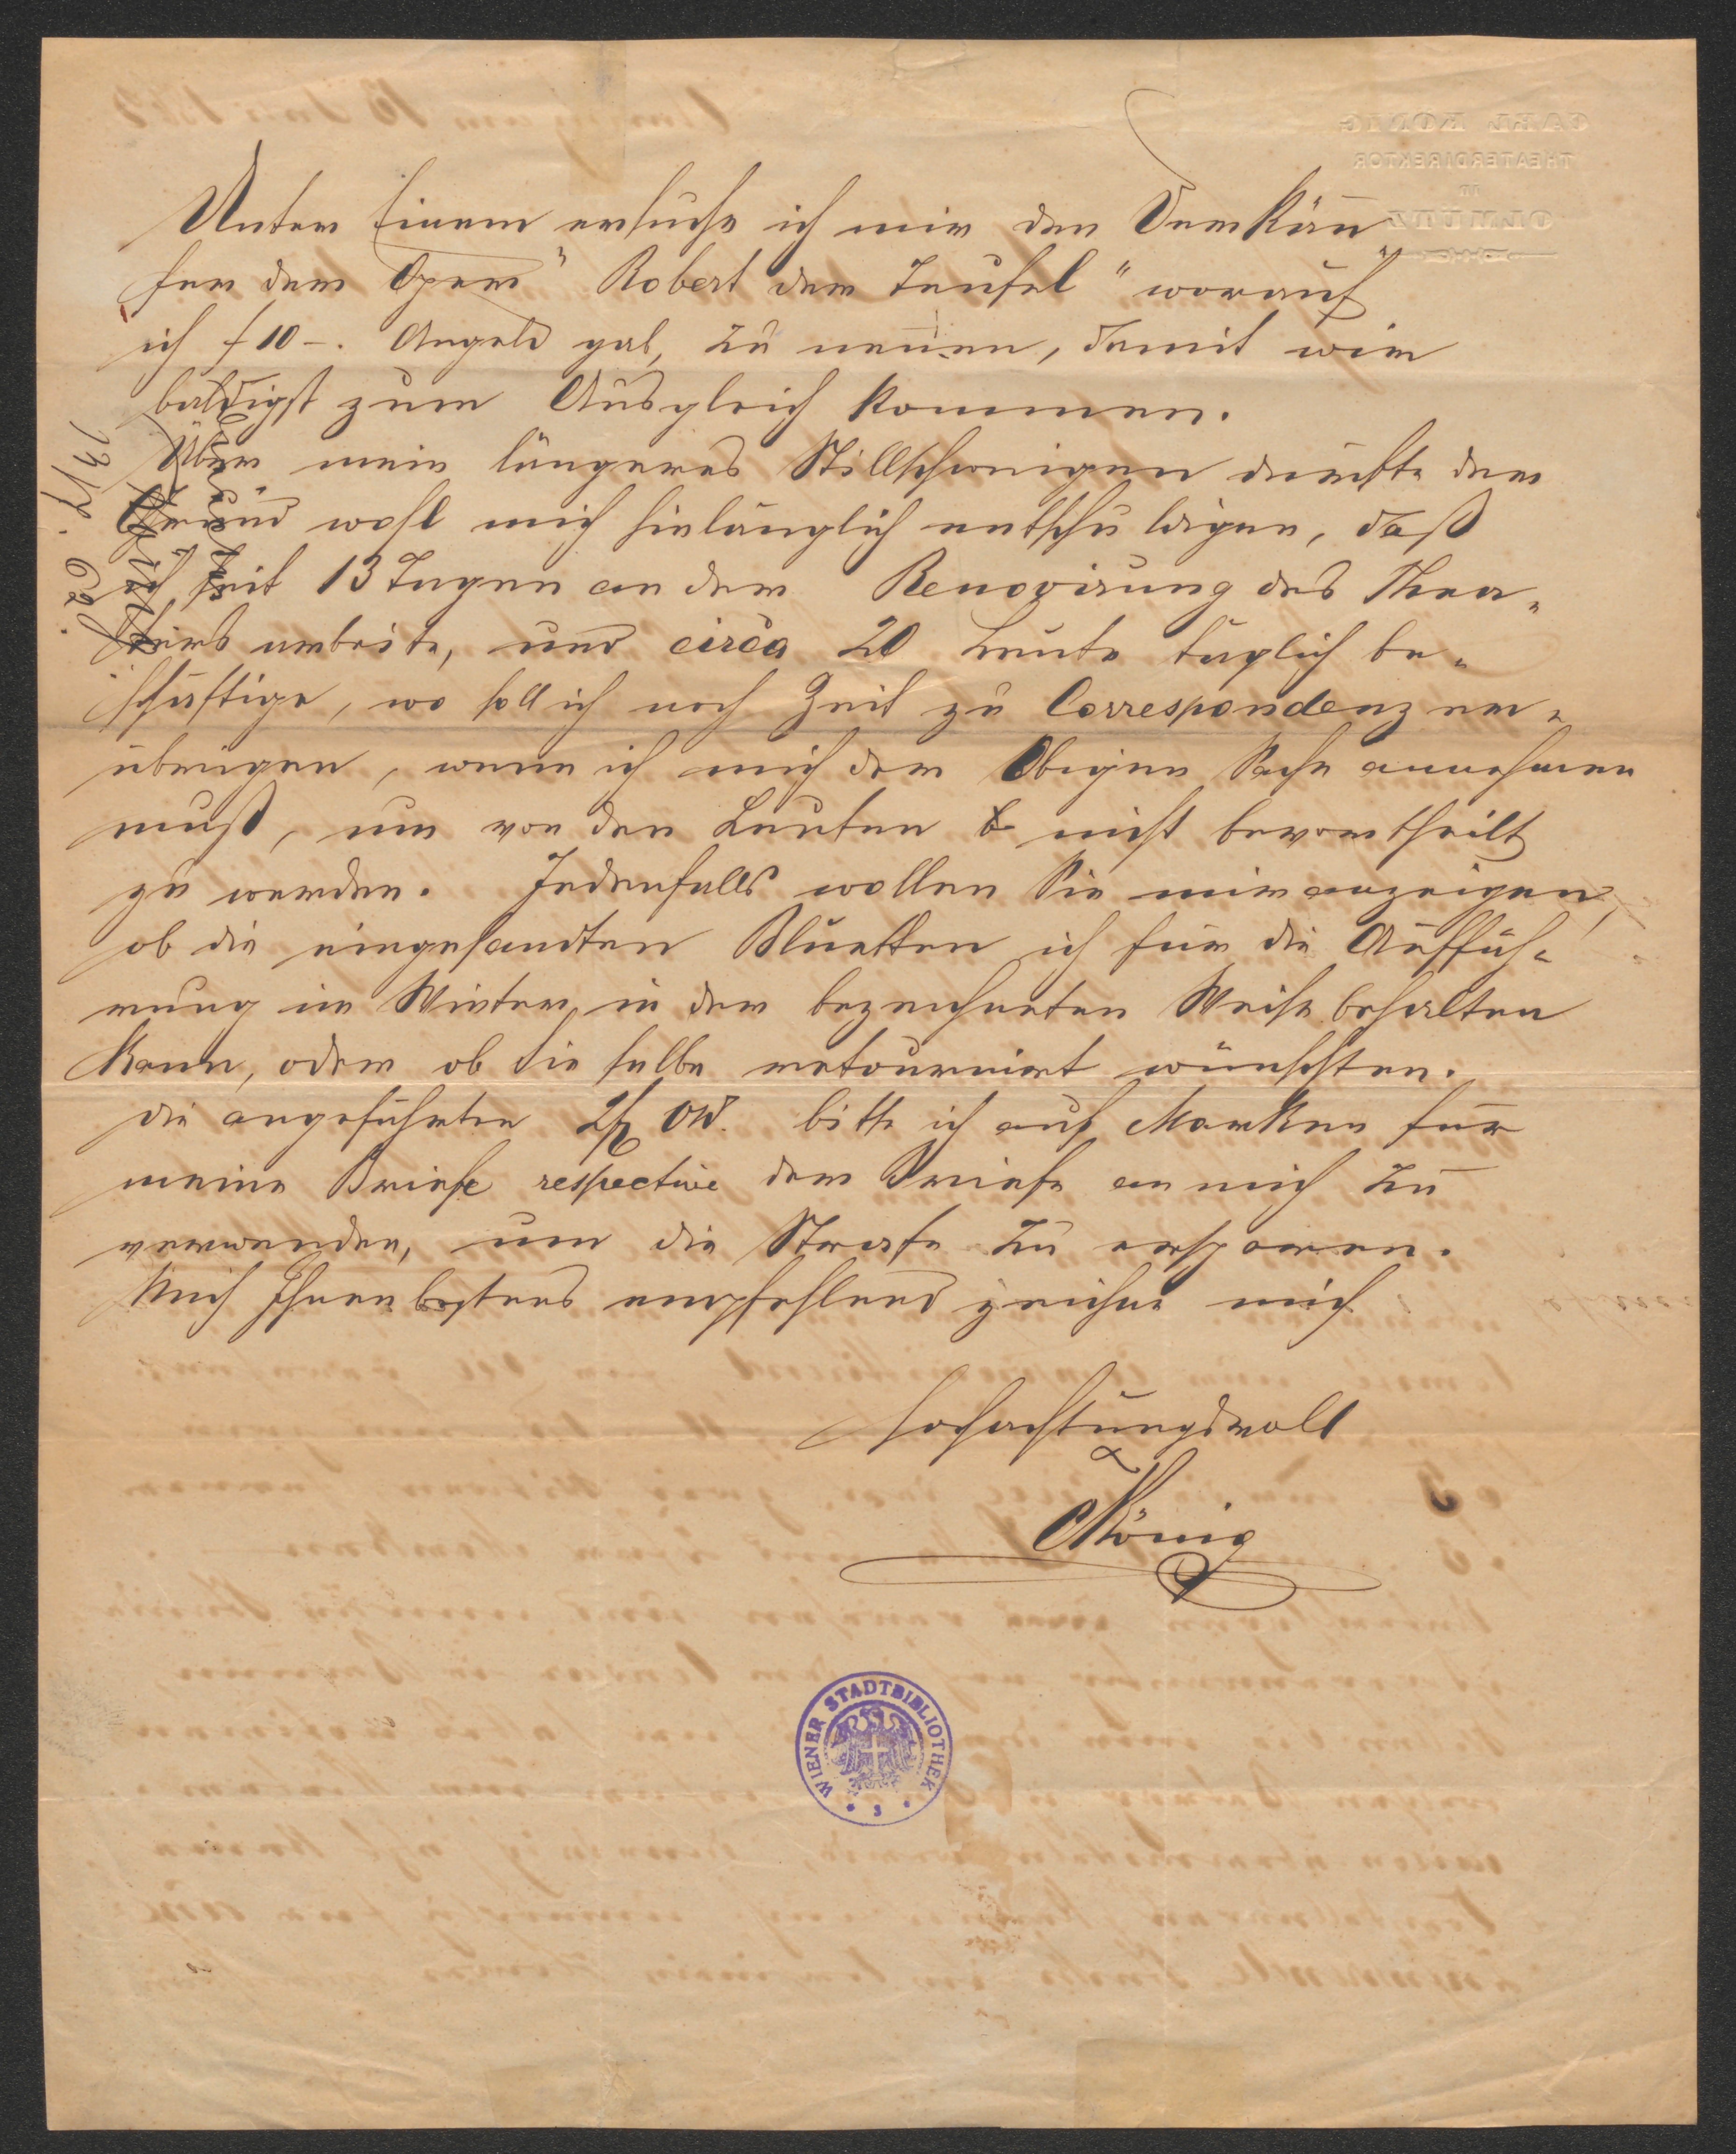 Unter Einem ersuche ich mir den Verkäu¯
fer der Oper "Robert der Teufel" worauf
ich f 10 –. Angeld gab, zu nennen, damit wir
baldigst zum Ausgleich kommen.
Über mein längeres Stillschweigen dürfte der
Grund wohl mich hinlänglich entschuldigen, daß
ich seit 13 Tagen an der Renovirung des Thea„
ters arbeite, und circa 20 Leute täglich be„
schäftige, wo soll ich noch Zeit zu Correspondenz er„
übrigen, wenn ich mich der Obigen Sache annehmen
muß, um von den Leuten nicht bevortheilt
zu werden. Jedenfalls wollen Sie mir anzeigen,
ob die eingesandten Bluetten ich für die Auffüh„
rung im Winter, in der bezeichneten Weise behalten
kann, oder ob Sie selbe retournirt wünschten.
die angeführten 2f OW. bitte ich auf Marken für
meine Briefe respective der Briefe an mich zu
verwenden, um die Strafe zu ersparen.
Mich Ihnen bestens empfehlend zeichne mich
hochachtungsvoll
CKönig
13/7. 62.
CARL KÖNIG
THEATERDIREKTOR
IN
OLMÜTZ
WIENER STADTBIBLIOTHEK